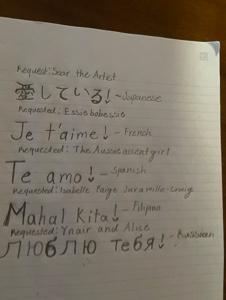 Request: Soar the Artist
愛している! - Japanese
Requested: Essiebabessie
Je t'aime! - French
Requested: The Aussie accent girl
Te amo! - Spanish
Requested: Isabelle Paige Jaramillo-Craig
Mahal Kita! - Filipino
Requested: Ynair and Alice
Люблю тебя! - Russian